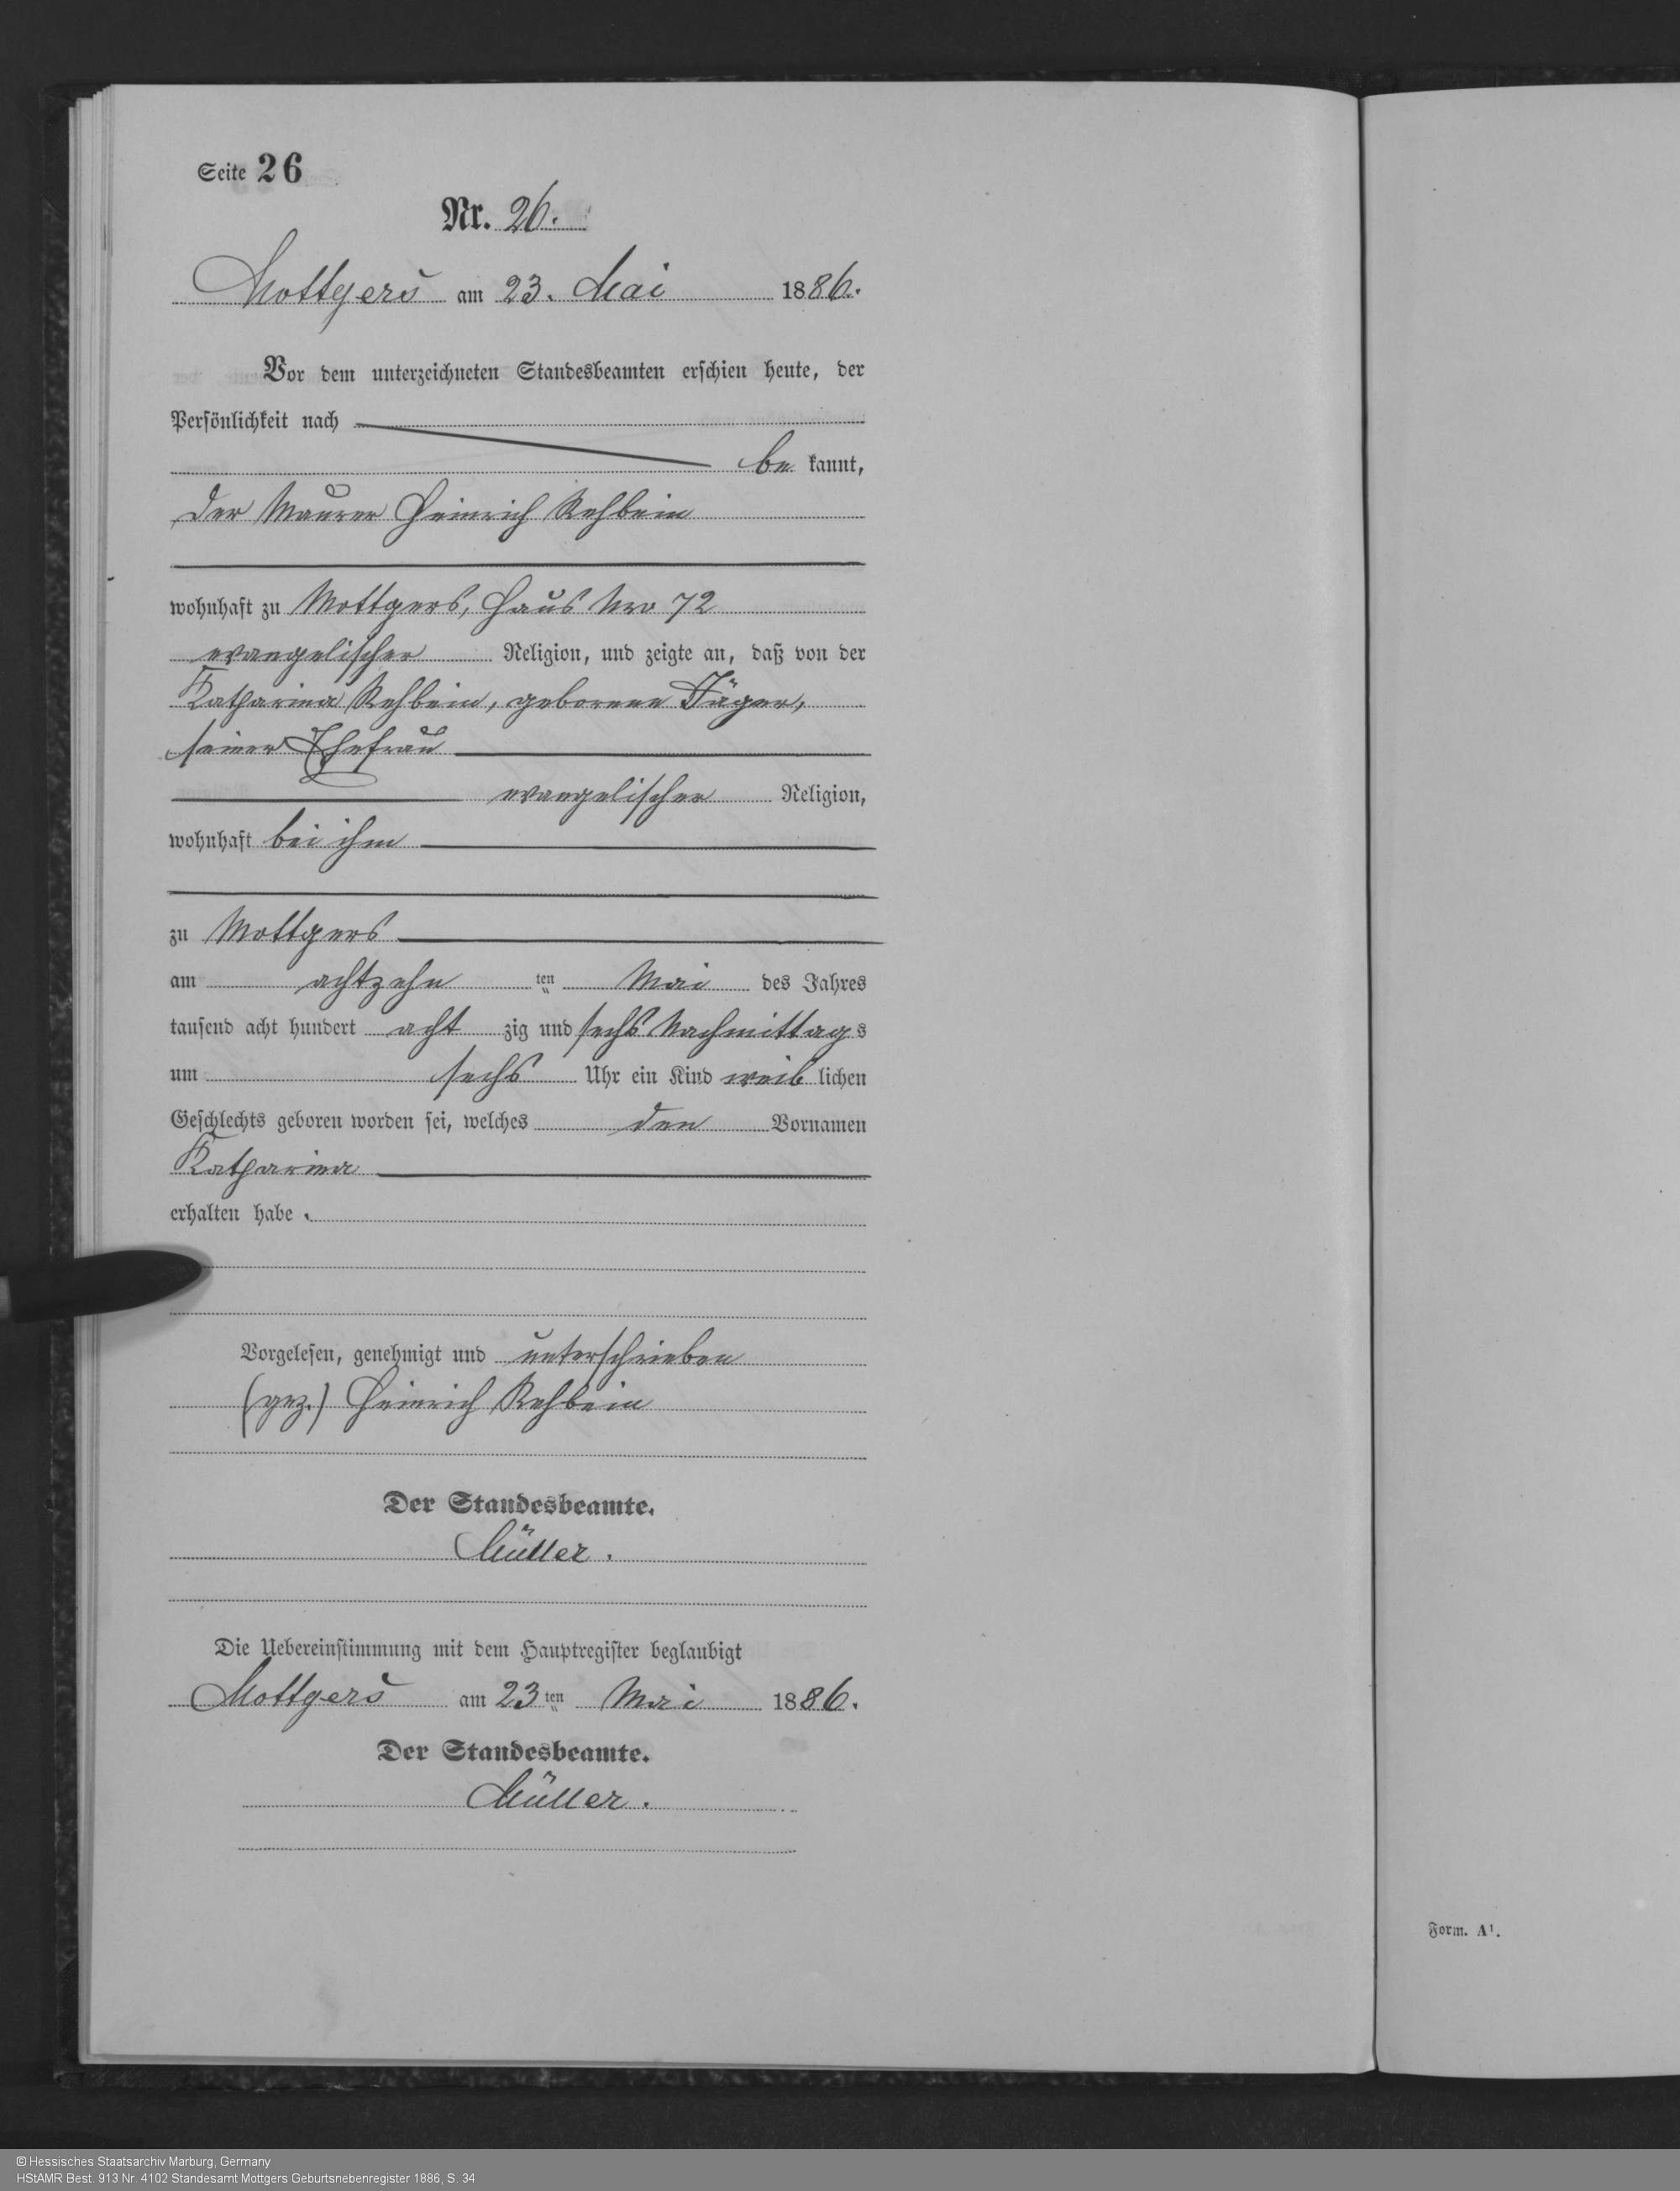 Seite 26
Nr. 26.
Mottgers am 23. Mai 1886.
Vor dem unterzeichneten Standesbeamten erschien heute, der
Persönlichkeit nach
be kannt,
der Maurer Heinrich Rehbein
wohnhaft zu Mottgers, Haus Nro 72
evangelischer Religion, und zeigte an, daß von der
Katharina Rehbein, geborene Jäger,
seiner Ehefrau
evangelischer Religion,
wohnhaft bei ihm
zu Mottgers
am achtzehn ten Mai des Jahres
tausend acht hundert acht zig und sechs Nachmittags
um sechs Uhr ein Kind weib lichen
Geschlechts geboren worden sei, welches den Vornamen
Katharina
erhalten habe.
Vorgelesen, genehmigt und unterschrieben
(gez.) Heinrich Rehbein
Der Standesbeamte.
Müller.
Die Uebereinstimmung mit dem Hauptregister beglaubigt
Mottgers am 23 ten Mai 1886.
Der Standesbeamte.
Müller.
Form. A¹.
© Hessisches Staatsarchiv Marburg, Germany
HStAMR Best. 913 Nr. 4102 Standesamt Mottgers Geburtsnebenregister 1886, S. 34